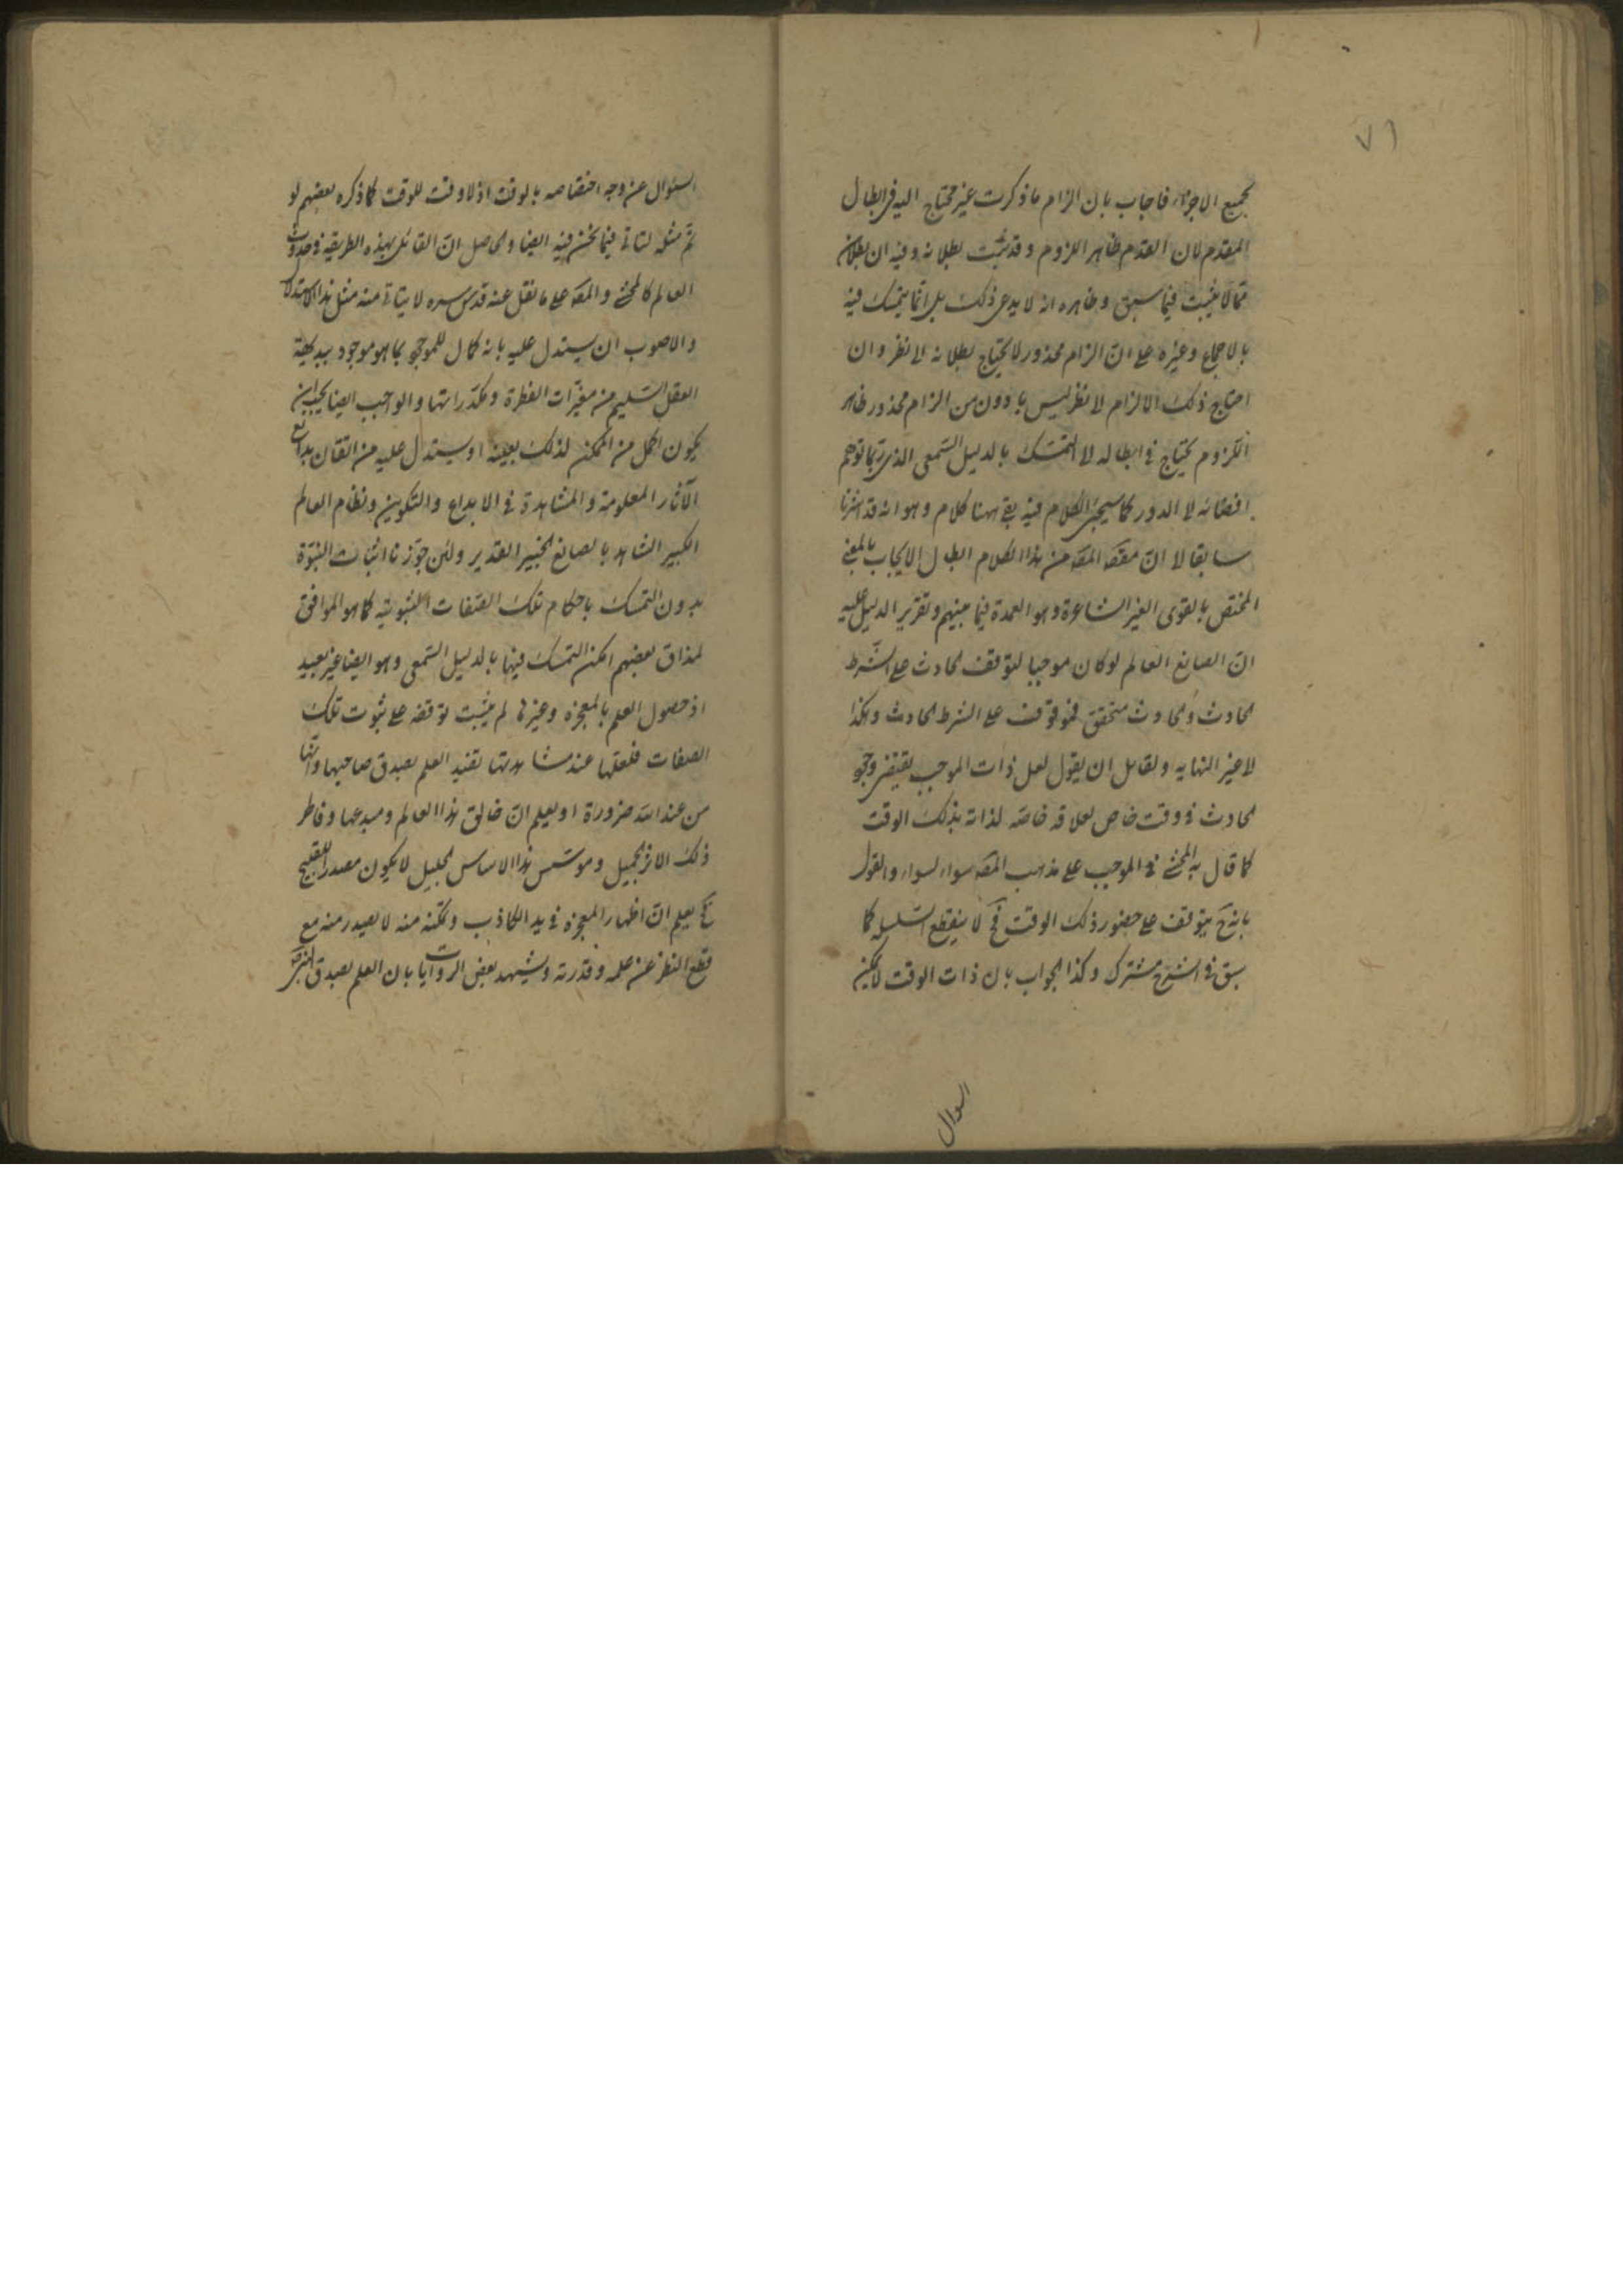 ٧١
بجميع الاجزاء فاجاب بان الزام ما ذكرت غير محتاج اليه فى ابطال
المقدم لان القدم ظاهر اللزوم و قد ثبت بطلانه و فيه ان بطلان
مما لا يثبت فيما سبق و ظاهره انه لا يدعى ذلك بل انما يتمسك فيه
بالاجماع و غيره على ان الزام محذور لا يحتاج بطلانه الى نظر و ان
احتاج ذلك الالزام الى نظر ليس بادون من الزام محذور ظاهر
اللزوم يحتاج فى ابطاله الى التمسك بالدليل السمعى الذى ربما توهم
افضائه الى الدور كما سيجئ الكلام فيه بقى ههنا كلام و هو انه قد اشرنا
سابقا الى ان مقصد المصه من هذا الكلام ابطال الايجاب بالمعنى
المختص بالقوى الغير الشاعرة و هو العمدة فيما بينهم و تقرير الدليل عليه
ان الصانع العالم لو كان موجبا لتوقف الحادث على الشرط
الحادث و الحادث متحقق فهو توقف على الشرط الحادث و هكذا
الى غير النهايه و لقايل ان يقول لعل ذات الموجب يقتضى وجود
الحادث فى وقت خاص لعلاقه خاصه لذاته بذلك الوقت
كما قال به المحشى فى الموجب على مذهب المصه سواء لسواء و القول
بانه ح يتوقف على حضور ذلك الوقت فح لا ينقطع التسلسل كما
سبق فى الشرح مشترك و كذا الجواب بان ذات الوقت لا يمكن
السوال
السئوال عن وجه اختصاصه بالوقت اذ لا وقت للوقت كما ذكره بعضهم لو
تم مثله لتاتى فيما نحن فيه ايضا و الحاصل ان القائل بهذه الطريقه فى حدوث
العالم كالمحشى و المصه على ما نقل عنه قدس سره لا يتاتى منه مثل هذا الاستدلال
و الاصوب ان يستدل عليه بانه كمال للموجود بما هو موجود ببديهة
العقل السليم من مغيرات الفطرة و مكدراتها و الواجب ايضا يجب ان
يكون اكمل من الممكن لذلك بعينه او يستدل عليه من اتقان بدايع
الآثار المعلومة و المشاهدة فى الابداع و التكوين و نظام العالم
الكبير الشاهد بالصانع الخبير القدير و لئن جوّزنا اثبات النبوّة
بدون التمسك باحكام تلك الصفات الثبوتيه كما هو الموافق
لمذاق بعضهم امكن التمسك فيها بالدليل السمعى و هو ايضا غير بعيد
اذ حصول العلم بالمعجزه و غيرها لم يثبت توقفه على ثبوت تلك
الصفات فلعلها عند مشاهدتها تفيد العلم بصدق صاحبها و انها
من عند الله ضرورة او يعلم ان خالق هذا العالم و مبدعها و فاطر
ذلك الاثر الجميل و موسس هذا الاساس الجليل لا يكون مصدرا للقبيح
فح يعلم ان اظهار المعجزه فى يد الكاذب و تمكنه منه لا يصدر منه مع
قطع النظر عن علمه و قدرته و يشهد بعض الروايات بان العلم بصدق